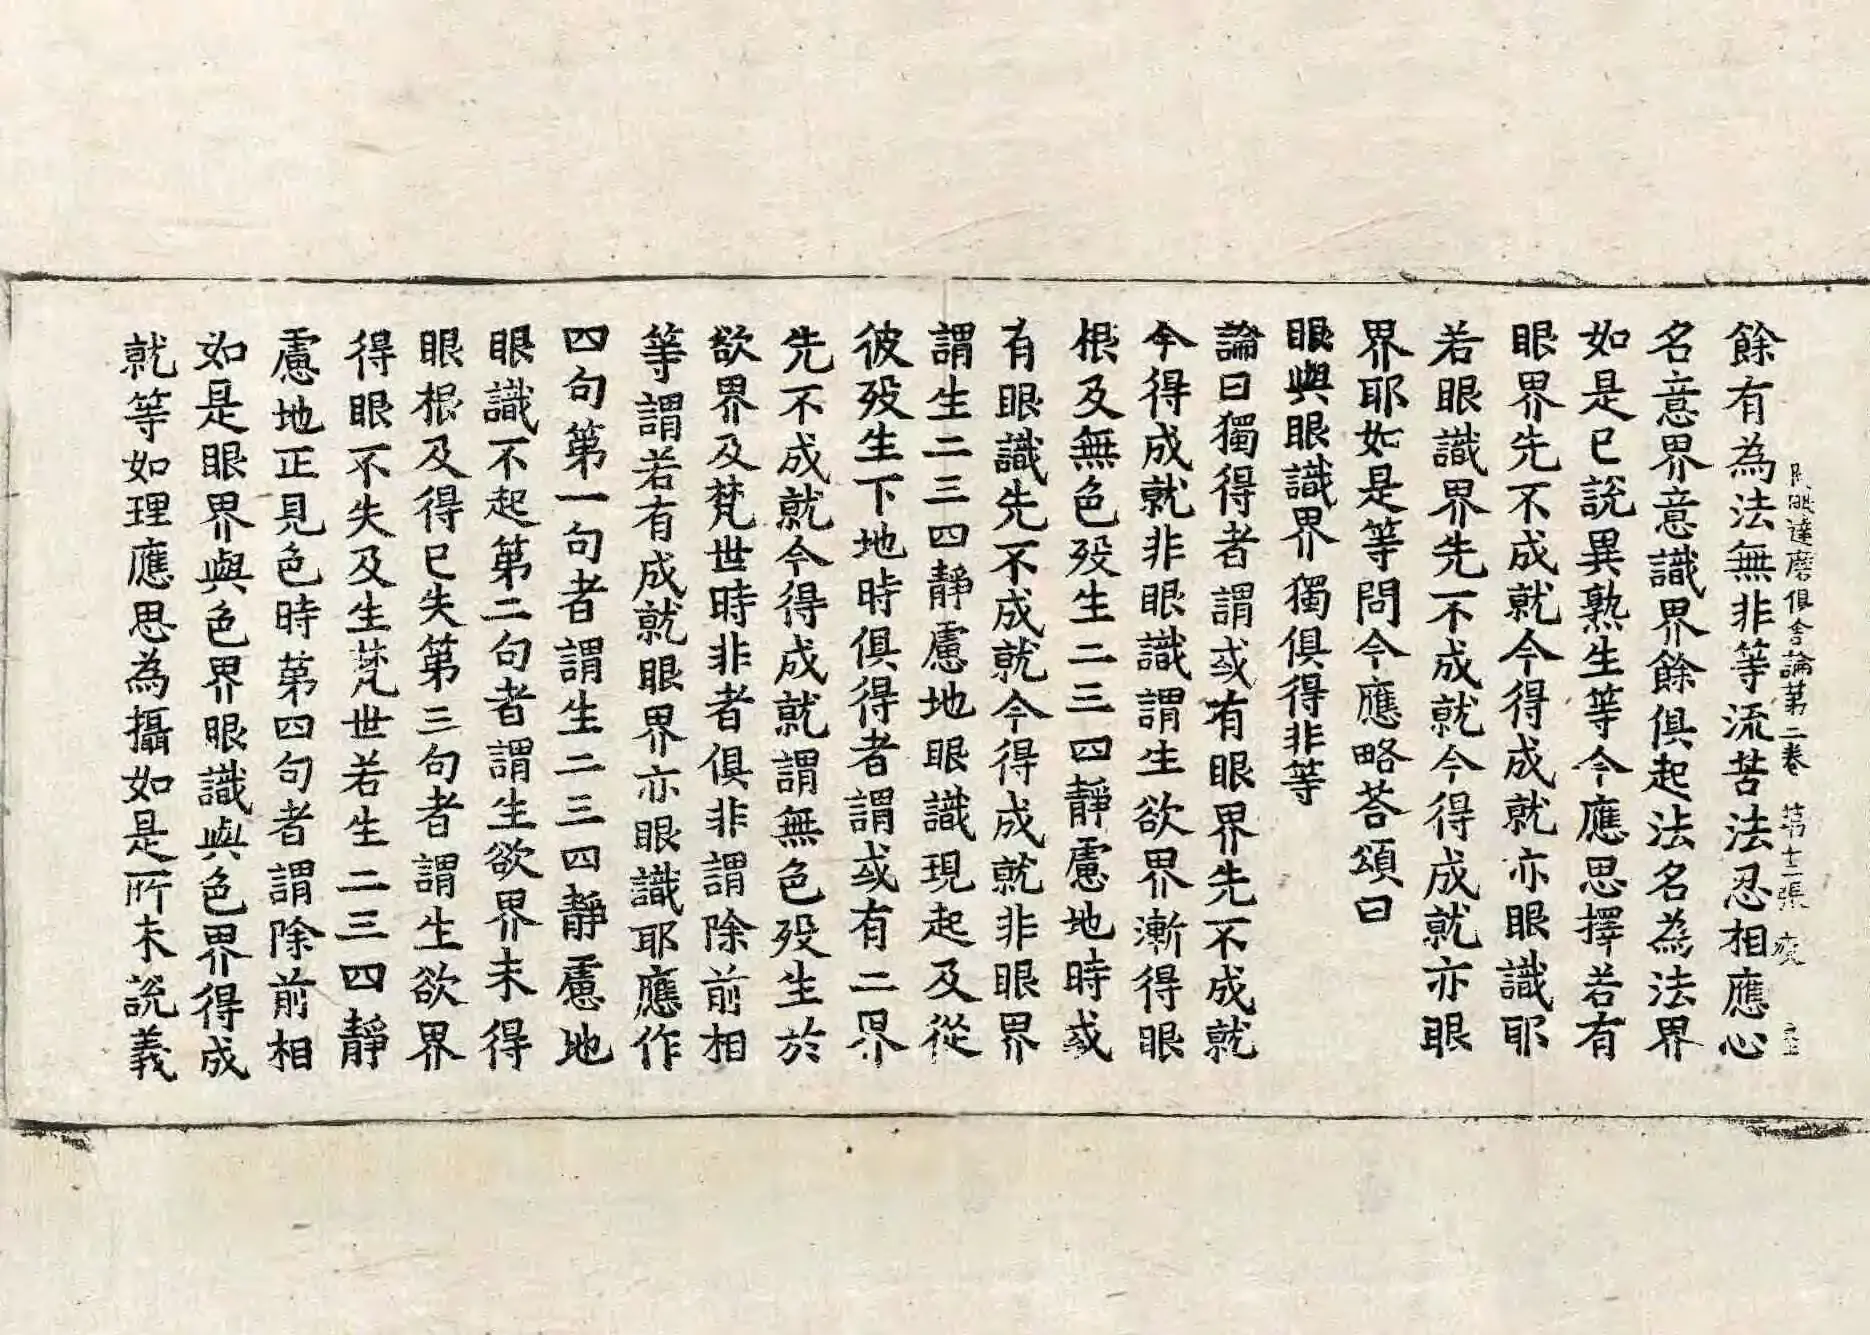 阿毗達磨俱舍論第二卷 第十二張
餘有為法無非等流苦法忍相應心
名意界意識界餘俱起法名為法界
如是已說異熟生等今應思擇若有
眼界先不成就今得成就亦眼識耶
若眼識界先不成就今得成就亦眼
界耶如是等問今應略荅頌曰
眼與眼識界獨俱得非等
論曰獨得者謂或有眼界先不成就
今得成就非眼識謂生欲界漸得眼
根及無色歿生二三四靜慮地時或
有眼識先不成就今得成就非眼界
謂生二三四靜慮地眼識現起及從
彼歿生下地時俱得者謂或有二界
先不成就今得成就謂無色歿生於
欲界及梵世時非者俱非謂除前相
等謂若有成就眼界亦眼識耶應作
四句第一句者謂生二三四靜慮地
眼識不起第二句者謂生欲界未得
眼根及得已失第三句者謂生欲界
得眼不失及生梵世若生二三四靜
慮地正見色時第四句者謂除前相
如是眼界與色界眼識與色界得成
就等如理應思為攝如是所未說義